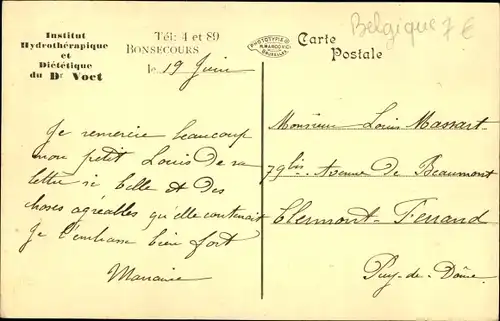 Institut
Hydrothérapique
et
Diététique
du Dr Voet
Tél: 4 et 89
BONSECOURS
le 19 Juin
Je remercie beaucoup
mon petit Louis de sa
lettre si belle et des
choses agréables qu'elle contenait
Je l'embrasse bien fort
Marraine
PHOTOTYPIE
BRUXELLES
Carte
Postale
Belgique 7 €
Monsieur Louis Massart
79bis Avenue de Beaumont
Clermont-Ferrand
Puy-de-Dôme